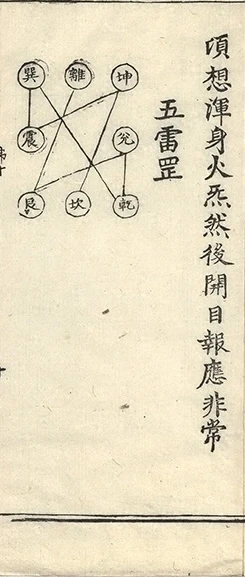 項想渾身火炁然後開目報應非常
五雷罡
巽 離 坤
震 兌
艮 坎 乾